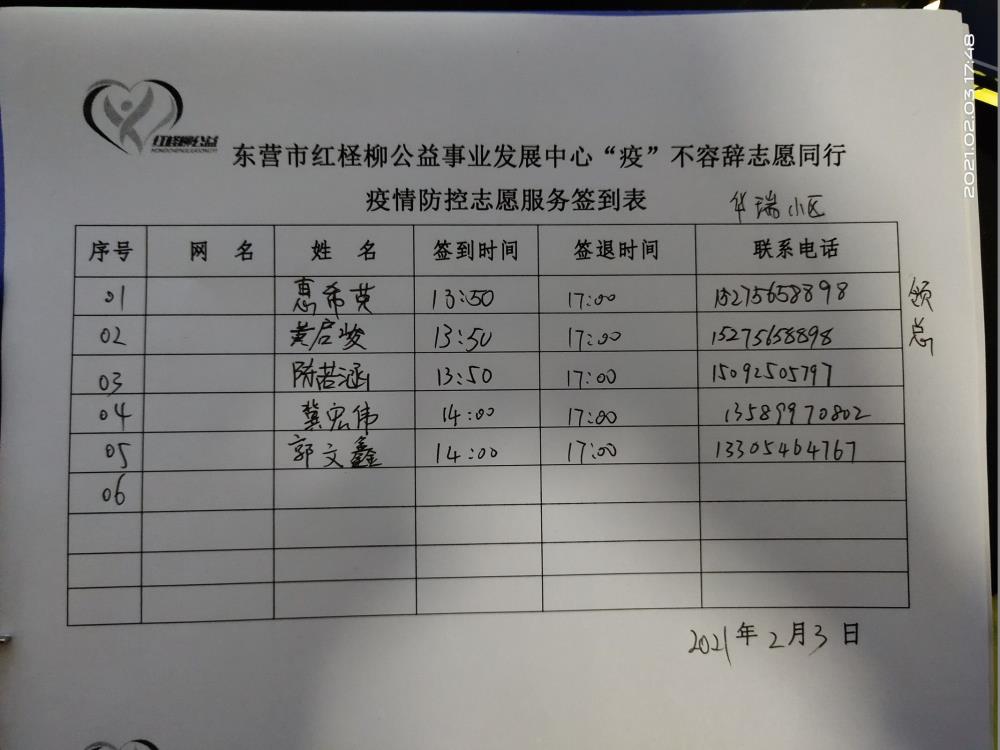 2021.02.03 17:48
红柽柳公益
HONGCHENGLIUGONGYI
东营市红柽柳公益事业发展中心“疫”不容辞志愿同行
疫情防控志愿服务签到表
华瑞小区
序号 网 名 姓 名 签到时间 签退时间 联系电话
01 惠希英 13:50 17:00 15275658898
02 黄启骏 13:50 17:00 15275658898
03 陈若涵 13:50 17:00 15092505797
04 冀宏伟 14:00 17:00 13589970802
05 郭文鑫 14:00 17:00 13305464767
06
2021年2月3日